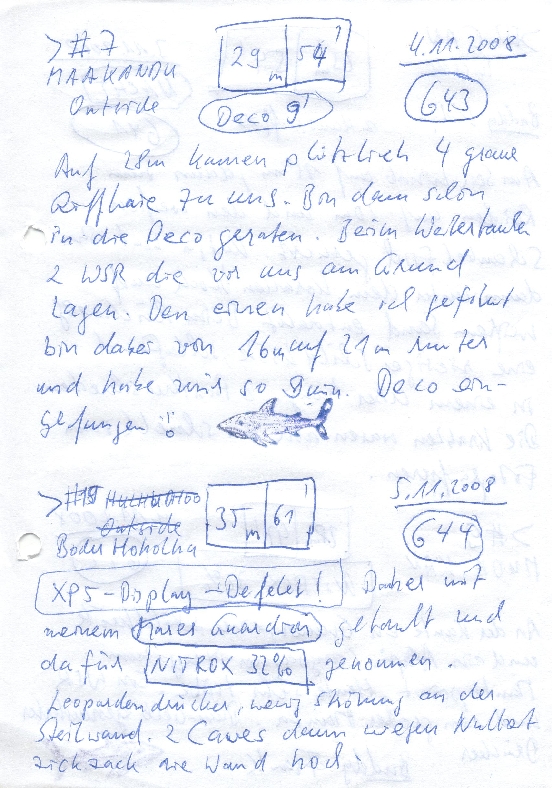 >#7 29m 54' 4.11.2008
MAAKANDU
Outside Deco 9' 643
Auf 28m kamen plötzlich 4 graue
Riffhaie zu uns. Bin dann schon
in die Deco geraten. Beim Weitertauchen
2 WSR die vor uns am Grund
lagen. Den einen habe ich gefilmt
bin dabei von 16m auf 21m runter
und habe mir so 9min. Deco ein-
gefangen!!
>#19 HUHUDHOO 35m 61' 5.11.2008
Outside
Bodu Hoholha 644
XP5-Display-Defekt! Daher mit
meinem Mares Guardian getaucht und
dafür NITROX 32% genommen.
Leopardendrücker, wenig Strömung an der
Steilwand. 2 Caves dann wegen Nullzeit
zickzack die Wand hoch.